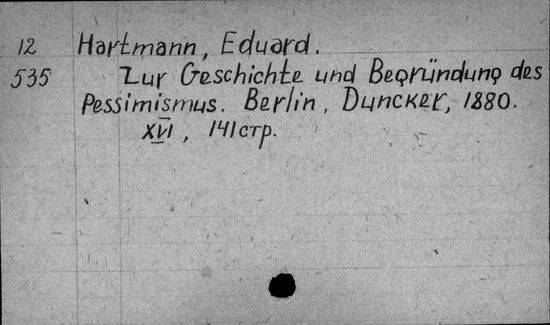 12 Hartmann, Eduard.
535 Zur Geschichte und Begründung des
Pessimismus. Berlin, Duncker, 1880.
XVI, 141 стр.